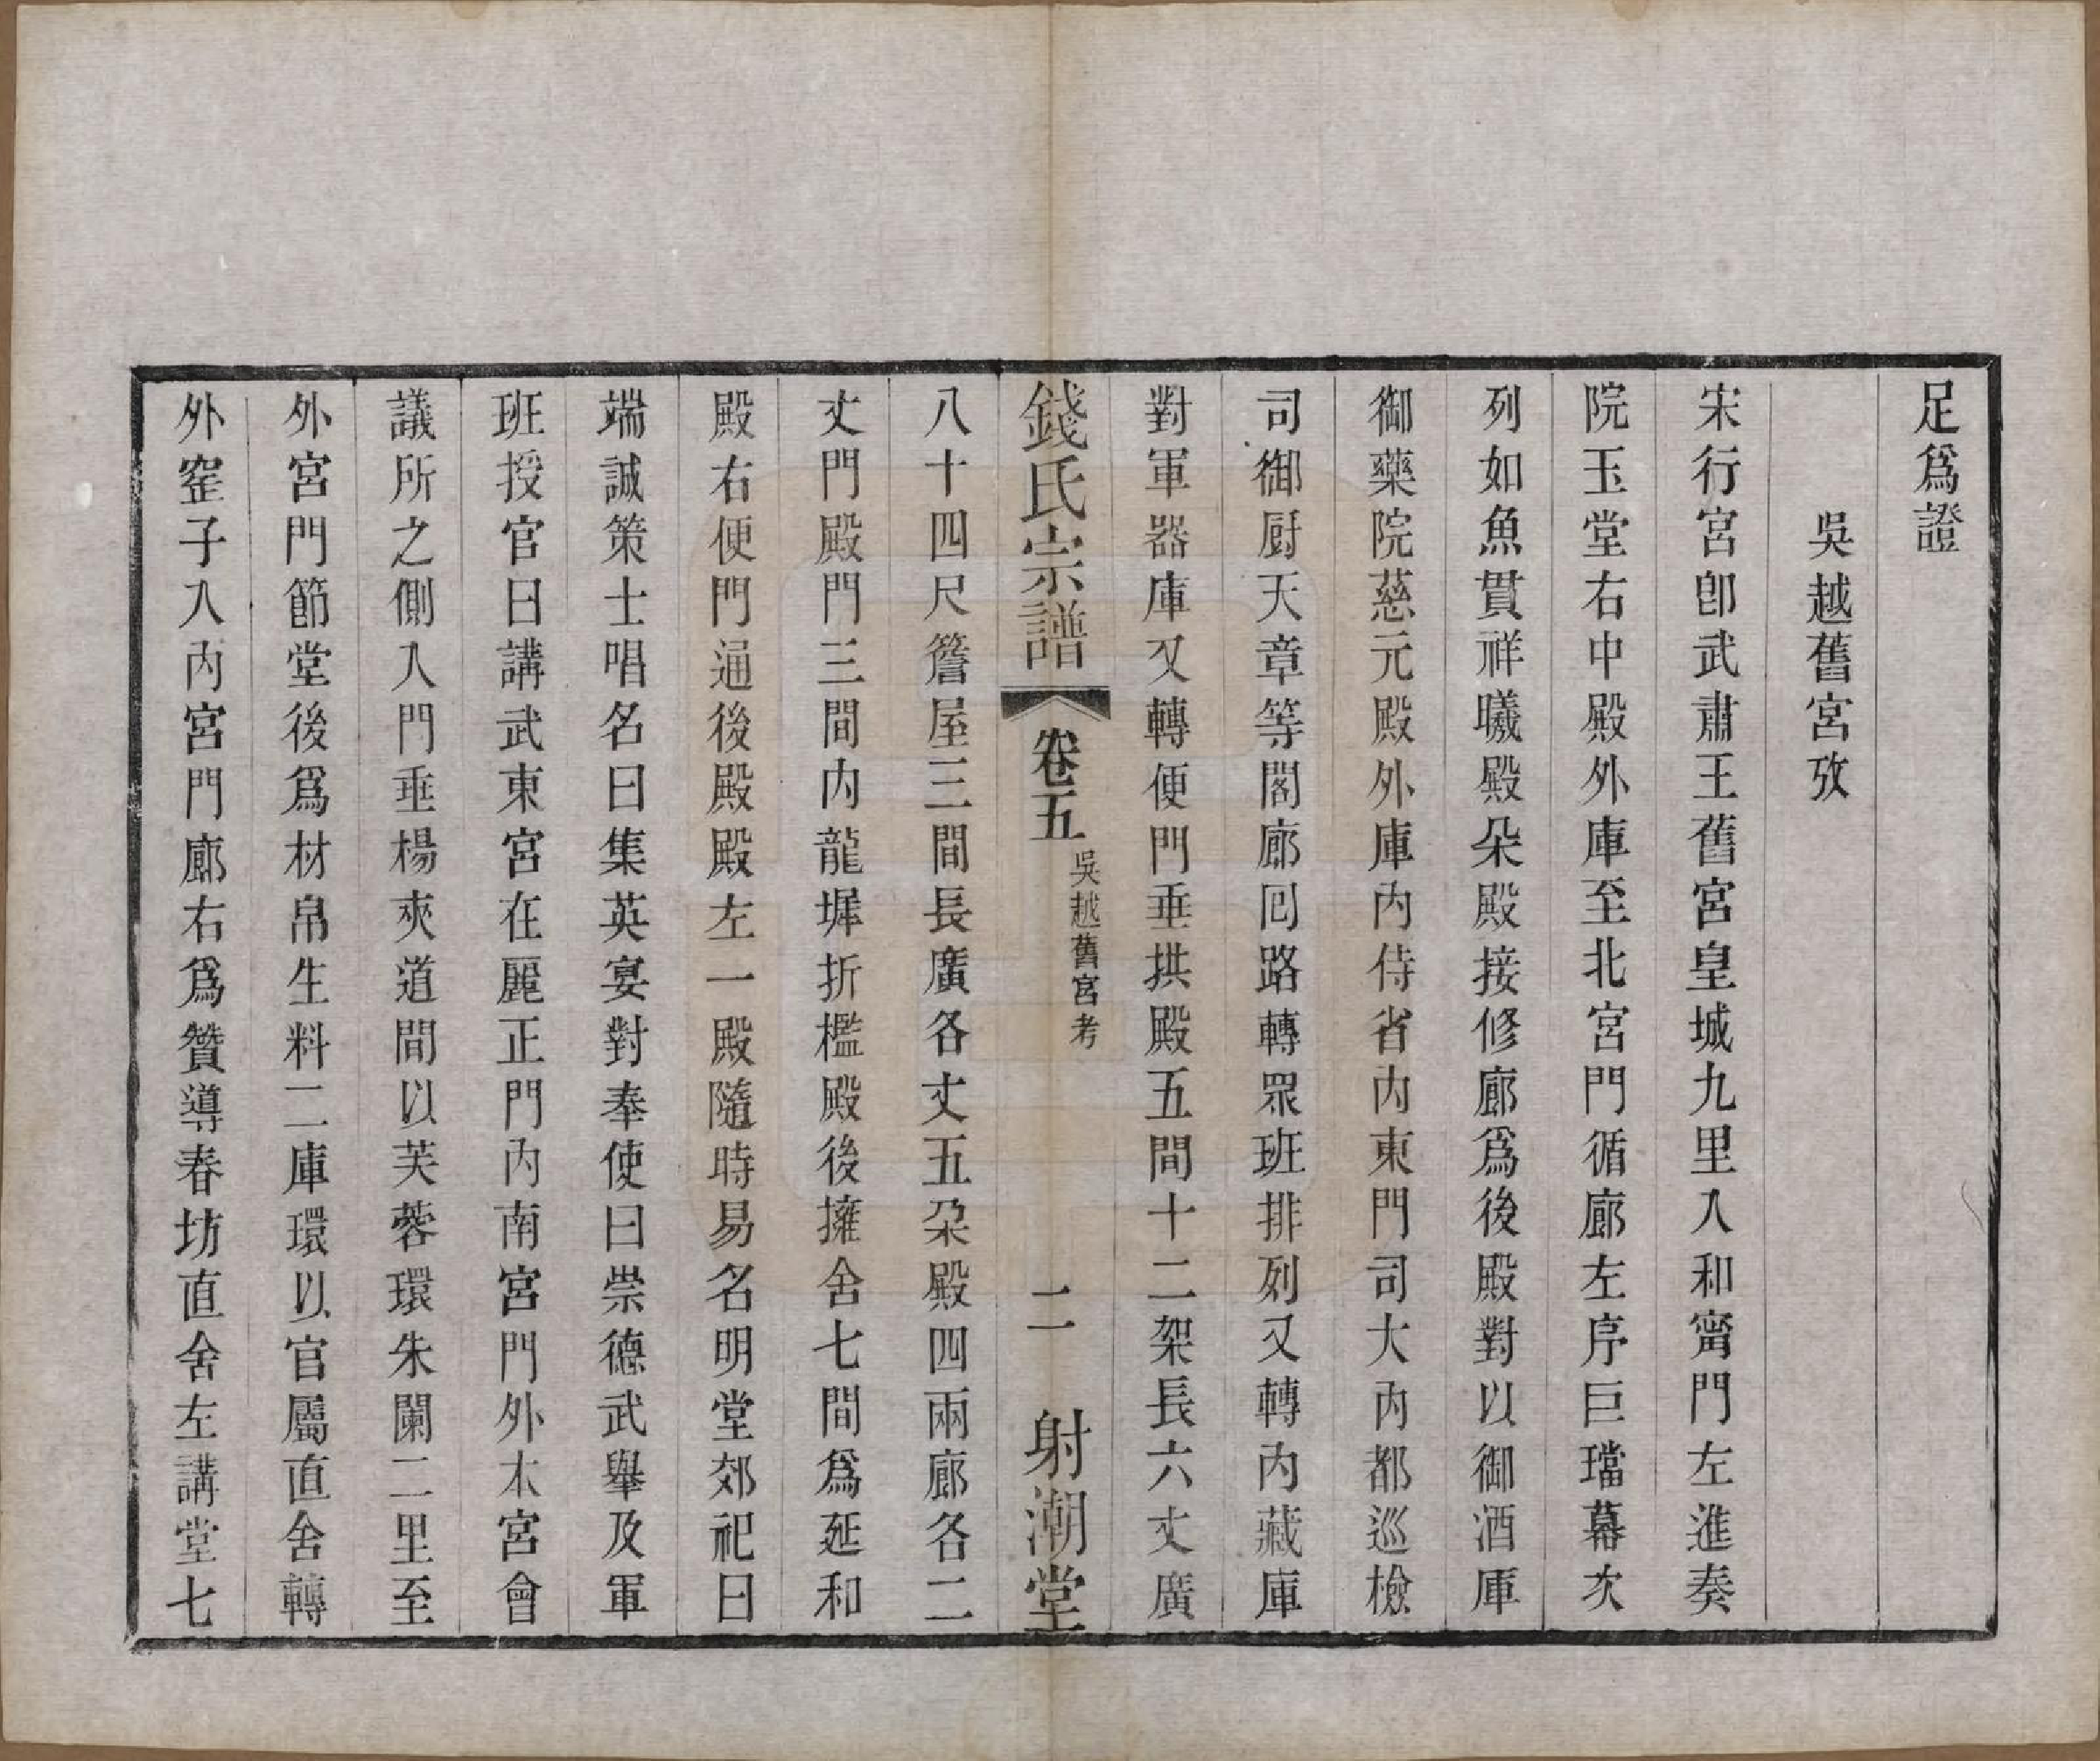 足爲證
吳越舊宮攷
宋行宮卽武肅王舊宮皇城九里入和甯門左進奏
院玉堂右中殿外庫至北宮門循廊左序巨璫幕次
列如魚貫祥曦殿朵殿接修廊爲後殿對以御酒庫
御藥院慈元殿外庫內侍省內東門司大內都巡檢
司御厨天章等閣廊囘路轉眾班排列又轉內藏庫
對軍器庫又轉便門垂拱殿五間十二架長六丈廣
錢氏宗譜 卷五 吳越舊宮考 二 射潮堂
八十四尺簷屋三間長廣各丈五朵殿四兩廊各二
丈門殿門三間內龍墀折檻殿後擁舍七間爲延和
殿右便門通後殿殿左一殿隨時易名明堂郊祀曰
端誠策士唱名曰集英宴對奉使曰崇德武舉及軍
班授官曰講武東宮在麗正門內南宮門外本宮會
議所之側入門垂楊夾道間以芙蓉環朱闌二里至
外宮門節堂後爲材帛生料二庫環以官屬直舍轉
外窑子入內宮門廊右爲贊導春坊直舍左講堂七